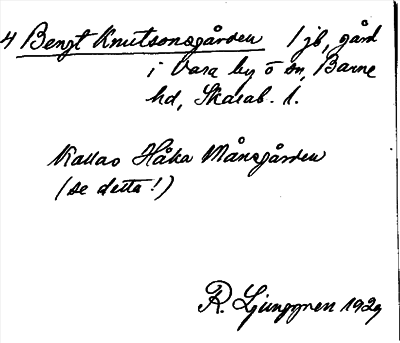 4 Bengt Knutsonsgården 1 jb, gård
i Vara by o sn, Barne
hd, Skarab. l.
Kallas Håka Månsgården
(se detta!)
R. Ljunggren 1929